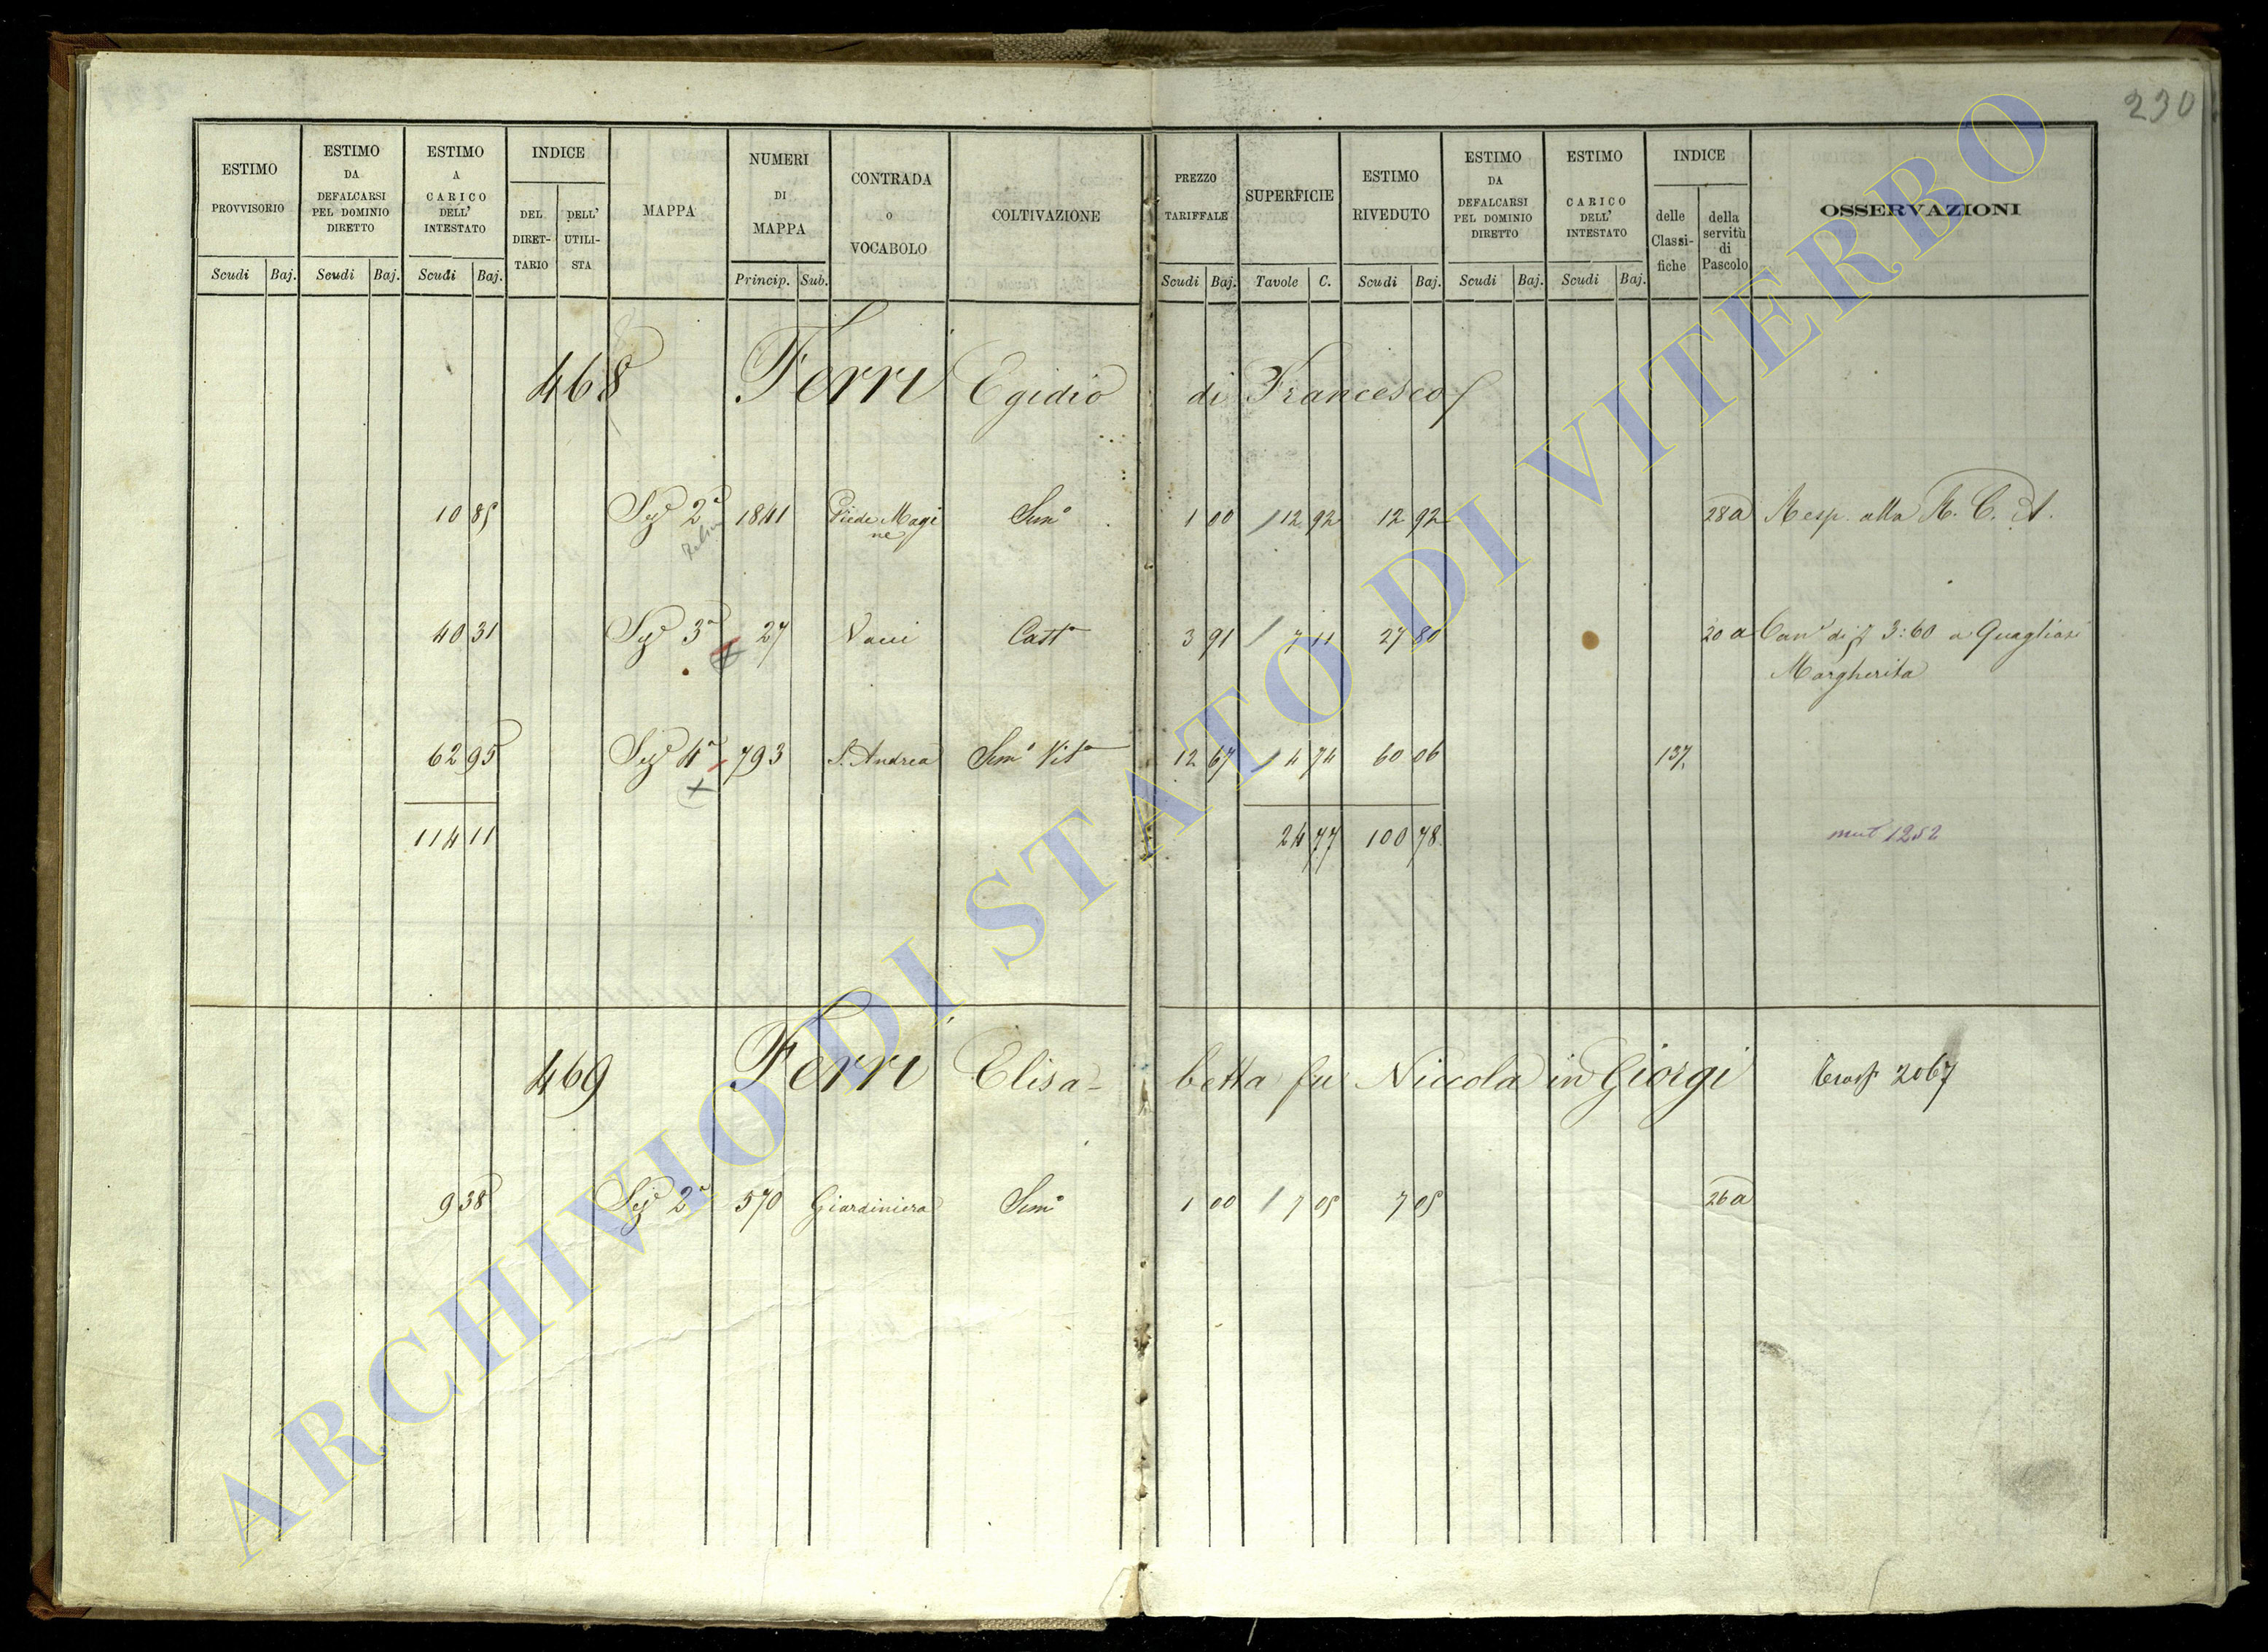 230
ESTIMO PROVVISORIO Scudi Baj.
ESTIMO DA DEFALCARSI PEL DOMINIO DIRETTO Scudi Baj.
ESTIMO A CARICO DELL' INTESTATO Scudi Baj.
INDICE DEL DIRETTARIO DELL' UTILISTA
MAPPA
NUMERI DI MAPPA Princip. Sub.
CONTRADA o VOCABOLO
COLTIVAZIONE
PREZZO TARIFFALE Scudi Baj.
SUPERFICIE Tavole C.
ESTIMO RIVEDUTO Scudi Baj.
ESTIMO DA DEFALCARSI PEL DOMINIO DIRETTO Scudi Baj.
ESTIMO A CARICO DELL' INTESTATO Scudi Baj.
INDICE delle Classifiche della servitù di Pascolo
OSSERVAZIONI
468 Ferri Egidio di Francesco
10 85 Sez. 2a 1841 Piede Magine Semo 1 00 12 92 12 92 28a Resp. alla R. C. A.
40 31 Sez. 3a 27 Casto 3 91 7 11 27 80 20 a Cane di 3:60 a
Margherita
62 95 Sez. 4a 793 S. Andrea Semo Vito 12 67 4 74 60 06 137
114 11 24 77 100 78 mut 1252
469 Ferri Elisabetta fu Niccola in Giorgi 2067
9 38 Sez. 2a 570 Giardiniera Semo 1 00 7 05 7 05 26a
ARCHIVIO DI STATO DI VITERBO